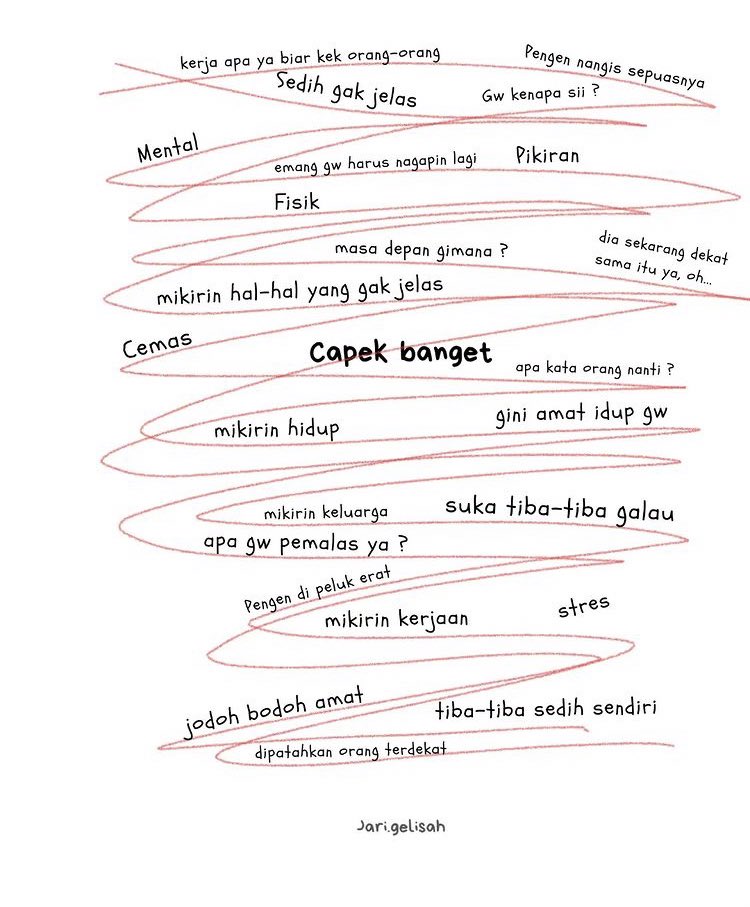 kerja apa ya biar kek orang-orang
Pengen nangis sepuasnya
Sedih gak jelas
Gw kenapa sii ?
Mental
emang gw harus nagapin lagi
Pikiran
Fisik
masa depan gimana ?
dia sekarang dekat
sama itu ya, oh...
mikirin hal-hal yang gak jelas
Cemas
Capek banget
apa kata orang nanti ?
mikirin hidup
gini amat idup gw
mikirin keluarga
suka tiba-tiba galau
apa gw pemalas ya ?
Pengen di peluk erat
mikirin kerjaan
stres
jodoh bodoh amat
tiba-tiba sedih sendiri
dipatahkan orang terdekat
Jari.gelisah